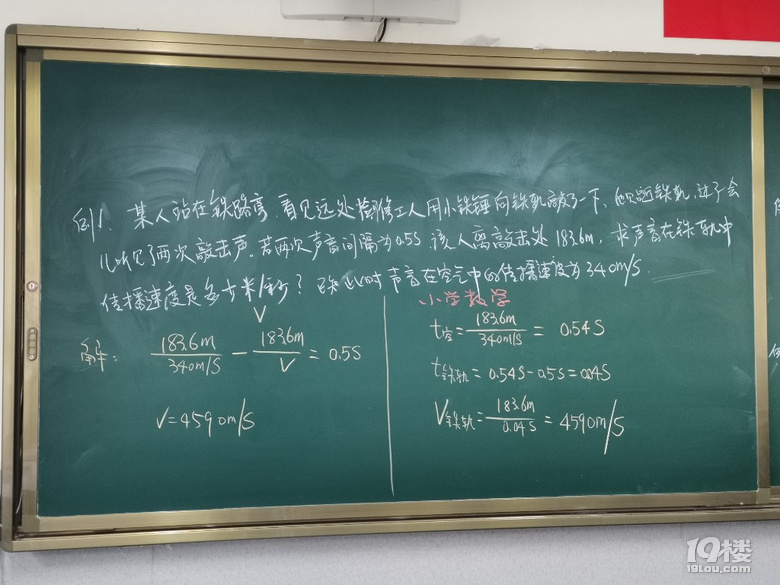 例1. 某人站在铁路旁, 看见远处检修工人用小铁锤向铁轨敲了一下, 他贴近铁轨, 过了会
儿听见了两次敲击声。若两次声音间隔为0.5S 该人离敲击处183.6m, 求声音在铁轨中
传播速度是多少米/秒? 已知此时声音在空气中的传播速度为340m/s.
V
解: 183.6m/340m/s - 183.6m/V = 0.5S
V=4590m/s
小学数学
t空=183.6m/340m/s = 0.54S
t铁轨=0.54S-0.5S=0.04S
V铁轨=183.6m/0.04S=4590m/s
19楼
19lou.com